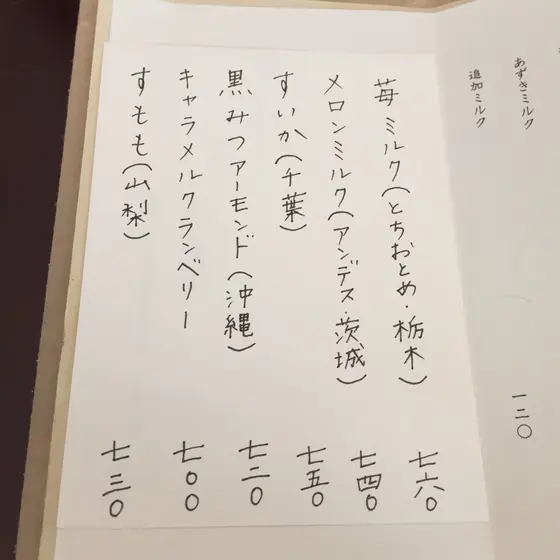 あずきミルク
追加ミルク
一二〇
苺ミルク(とちおとめ・栃木)
七六〇
メロンミルク(アンデス・茨城)
七四〇
すいか(千葉)
七五〇
黒みつアーモンド(沖縄)
七二〇
キャラメルクランベリー
七〇〇
すもも(山梨)
七三〇